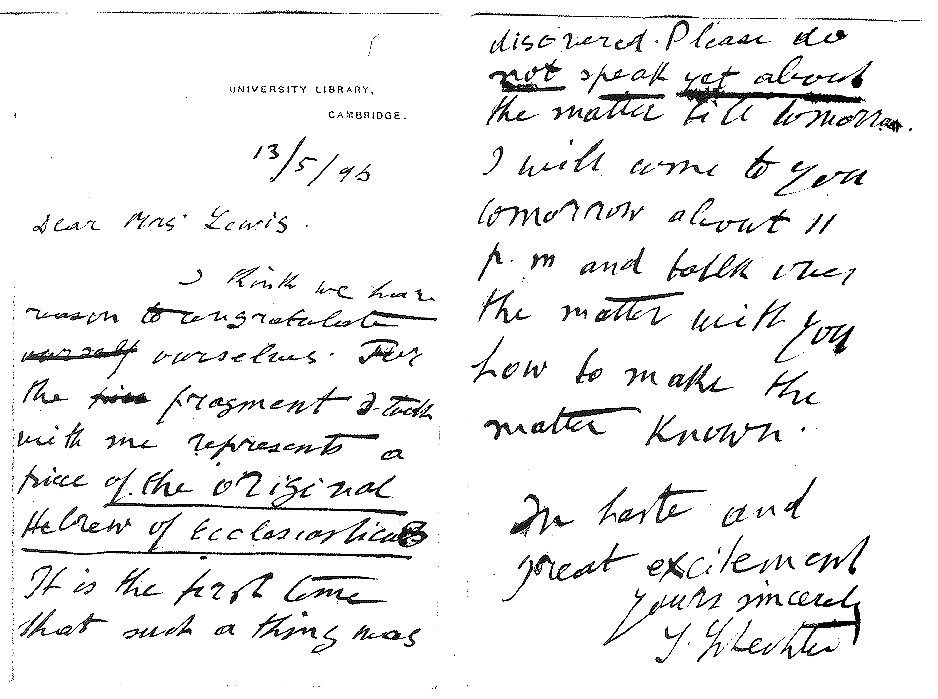 UNIVERSITY LIBRARY,
CAMBRIDGE.
13/5/96
Dear Mrs Lewis.
I think we have
reason to congratulate
ourself ourselves. For
the fragment I took
with me represents a
piece of the original
Hebrew of Ecclesiasticus
It is the first time
that such a thing was
discovered. Please do
not speak yet about
the matter till tomorrow.
I will come to you
tomorrow about 11
p.m and talk over
the matter with you
how to make the
matter known.
In haste and
great excitement
yours sincerely
S. Schechter